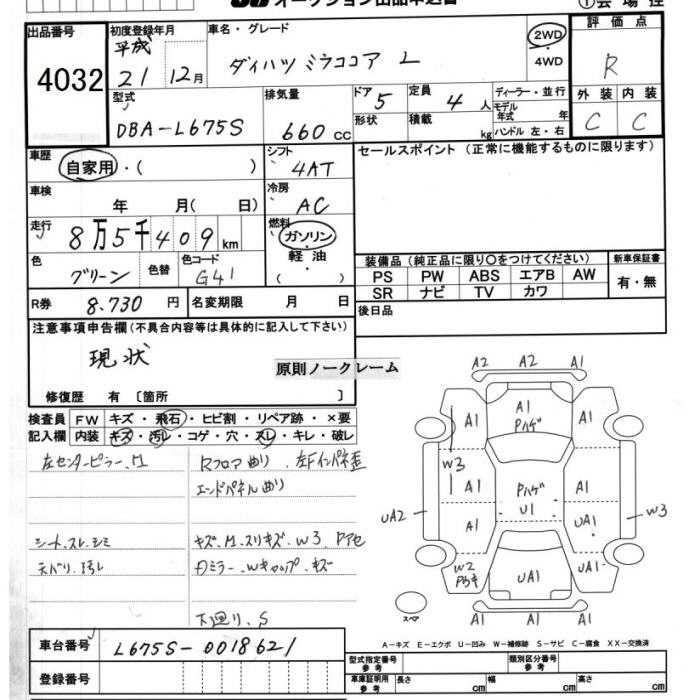 オークション出品申込書
①会場控
出品番号
4032
初度登録年月
平成
21 12月
車名・グレード
ダイハツ ミラココア L
2WD
・
4WD
評価点
R
外装 内装
C C
型式
DBA-L675S
排気量
660 cc
ドア 5
形状
定員 4 人
積載 kg
ディーラー・並行
モデル年式 年
ハンドル 左・右
車歴
自家用・( )
シフト
4AT
セールスポイント (正常に機能するものに限ります)
車検
年 月( 日)
冷房
AC
走行
8万5千409km
燃料
ガソリン
・
軽油
( )
色
グリーン
色替
色コード
G41
装備品 (純正品に限り〇をつけてください)
PS PW ABS エアB AW
SR ナビ TV カワ
新車保証書
有・無
R券 8.730 円
名変期限 月 日
後日品
注意事項申告欄(不具合内容等は具体的に記入して下さい)
現状
原則ノークレーム
修復歴 有 〔箇所 〕
検査員
記入欄
FW キズ・飛石・ヒビ割・リペア跡・×要
内装 キズ・汚レ・コゲ・穴・スレ・キレ・破レ
左センターピラー、M
Rフロア曲り 、左Fインパネ歪
エンドパネル曲り
シート、スレ、シミ
キズ、M、スリキズ、W3、Pアセ
天バリ、汚レ
下廻り、S
A2 A2 A1
A1 A1 A1
Pハゲ
W3
A1 Pハゲ A1
U1
UA2 A1 UA1 W3
W2 UA1 UA1
A1 A1 A1
スペア
A-キズ E-エクボ U-凹み W-補修跡 S-サビ C-腐食 XX-交換済
車台番号
L675S-0018621
登録番号
型式指定番号
参考
類別区分番号
参考
車庫証明用
参考
長さ cm 幅 cm 高さ cm